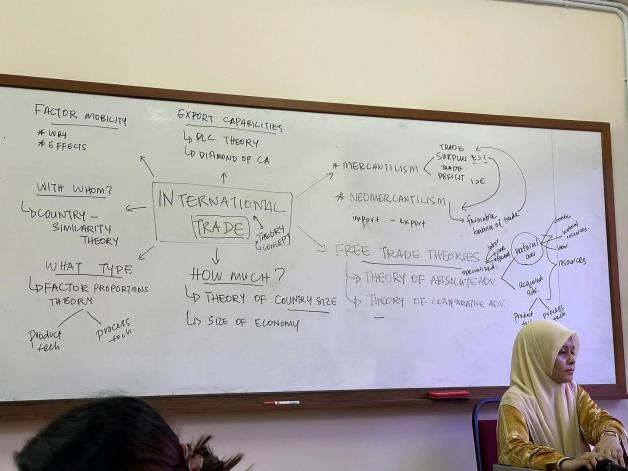 FACTOR MOBILITY
* WHY
* EFFECTS
EXPORT CAPABILITIES
↳ PLC THEORY
↳ DIAMOND OF CA
* MERCANTILISM
TRADE
SURPLUS E>I
TRADE
DEFICIT I>E
* NEOMERCANTILISM
import - export
↳ favorable
balance of trade
WITH WHOM?
↳ COUNTRY -
SIMILARITY
THEORY
INTERNATIONAL
TRADE
THEORY
& CONCEPT
WHAT TYPE
↳ FACTOR PROPORTIONS
THEORY
Product
tech
process
tech.
HOW MUCH?
↳ THEORY OF COUNTRY SIZE
↳ SIZE OF ECONOMY
FREE TRADE THEORIES
↳ THEORY OF ABSOLUTE ADV.
↳ THEORY OF COMPARATIVE ADV.
specialized
natural
adv
climate
natural
resources
labor
resources
acquired
adv.
Product
tech
process
tech